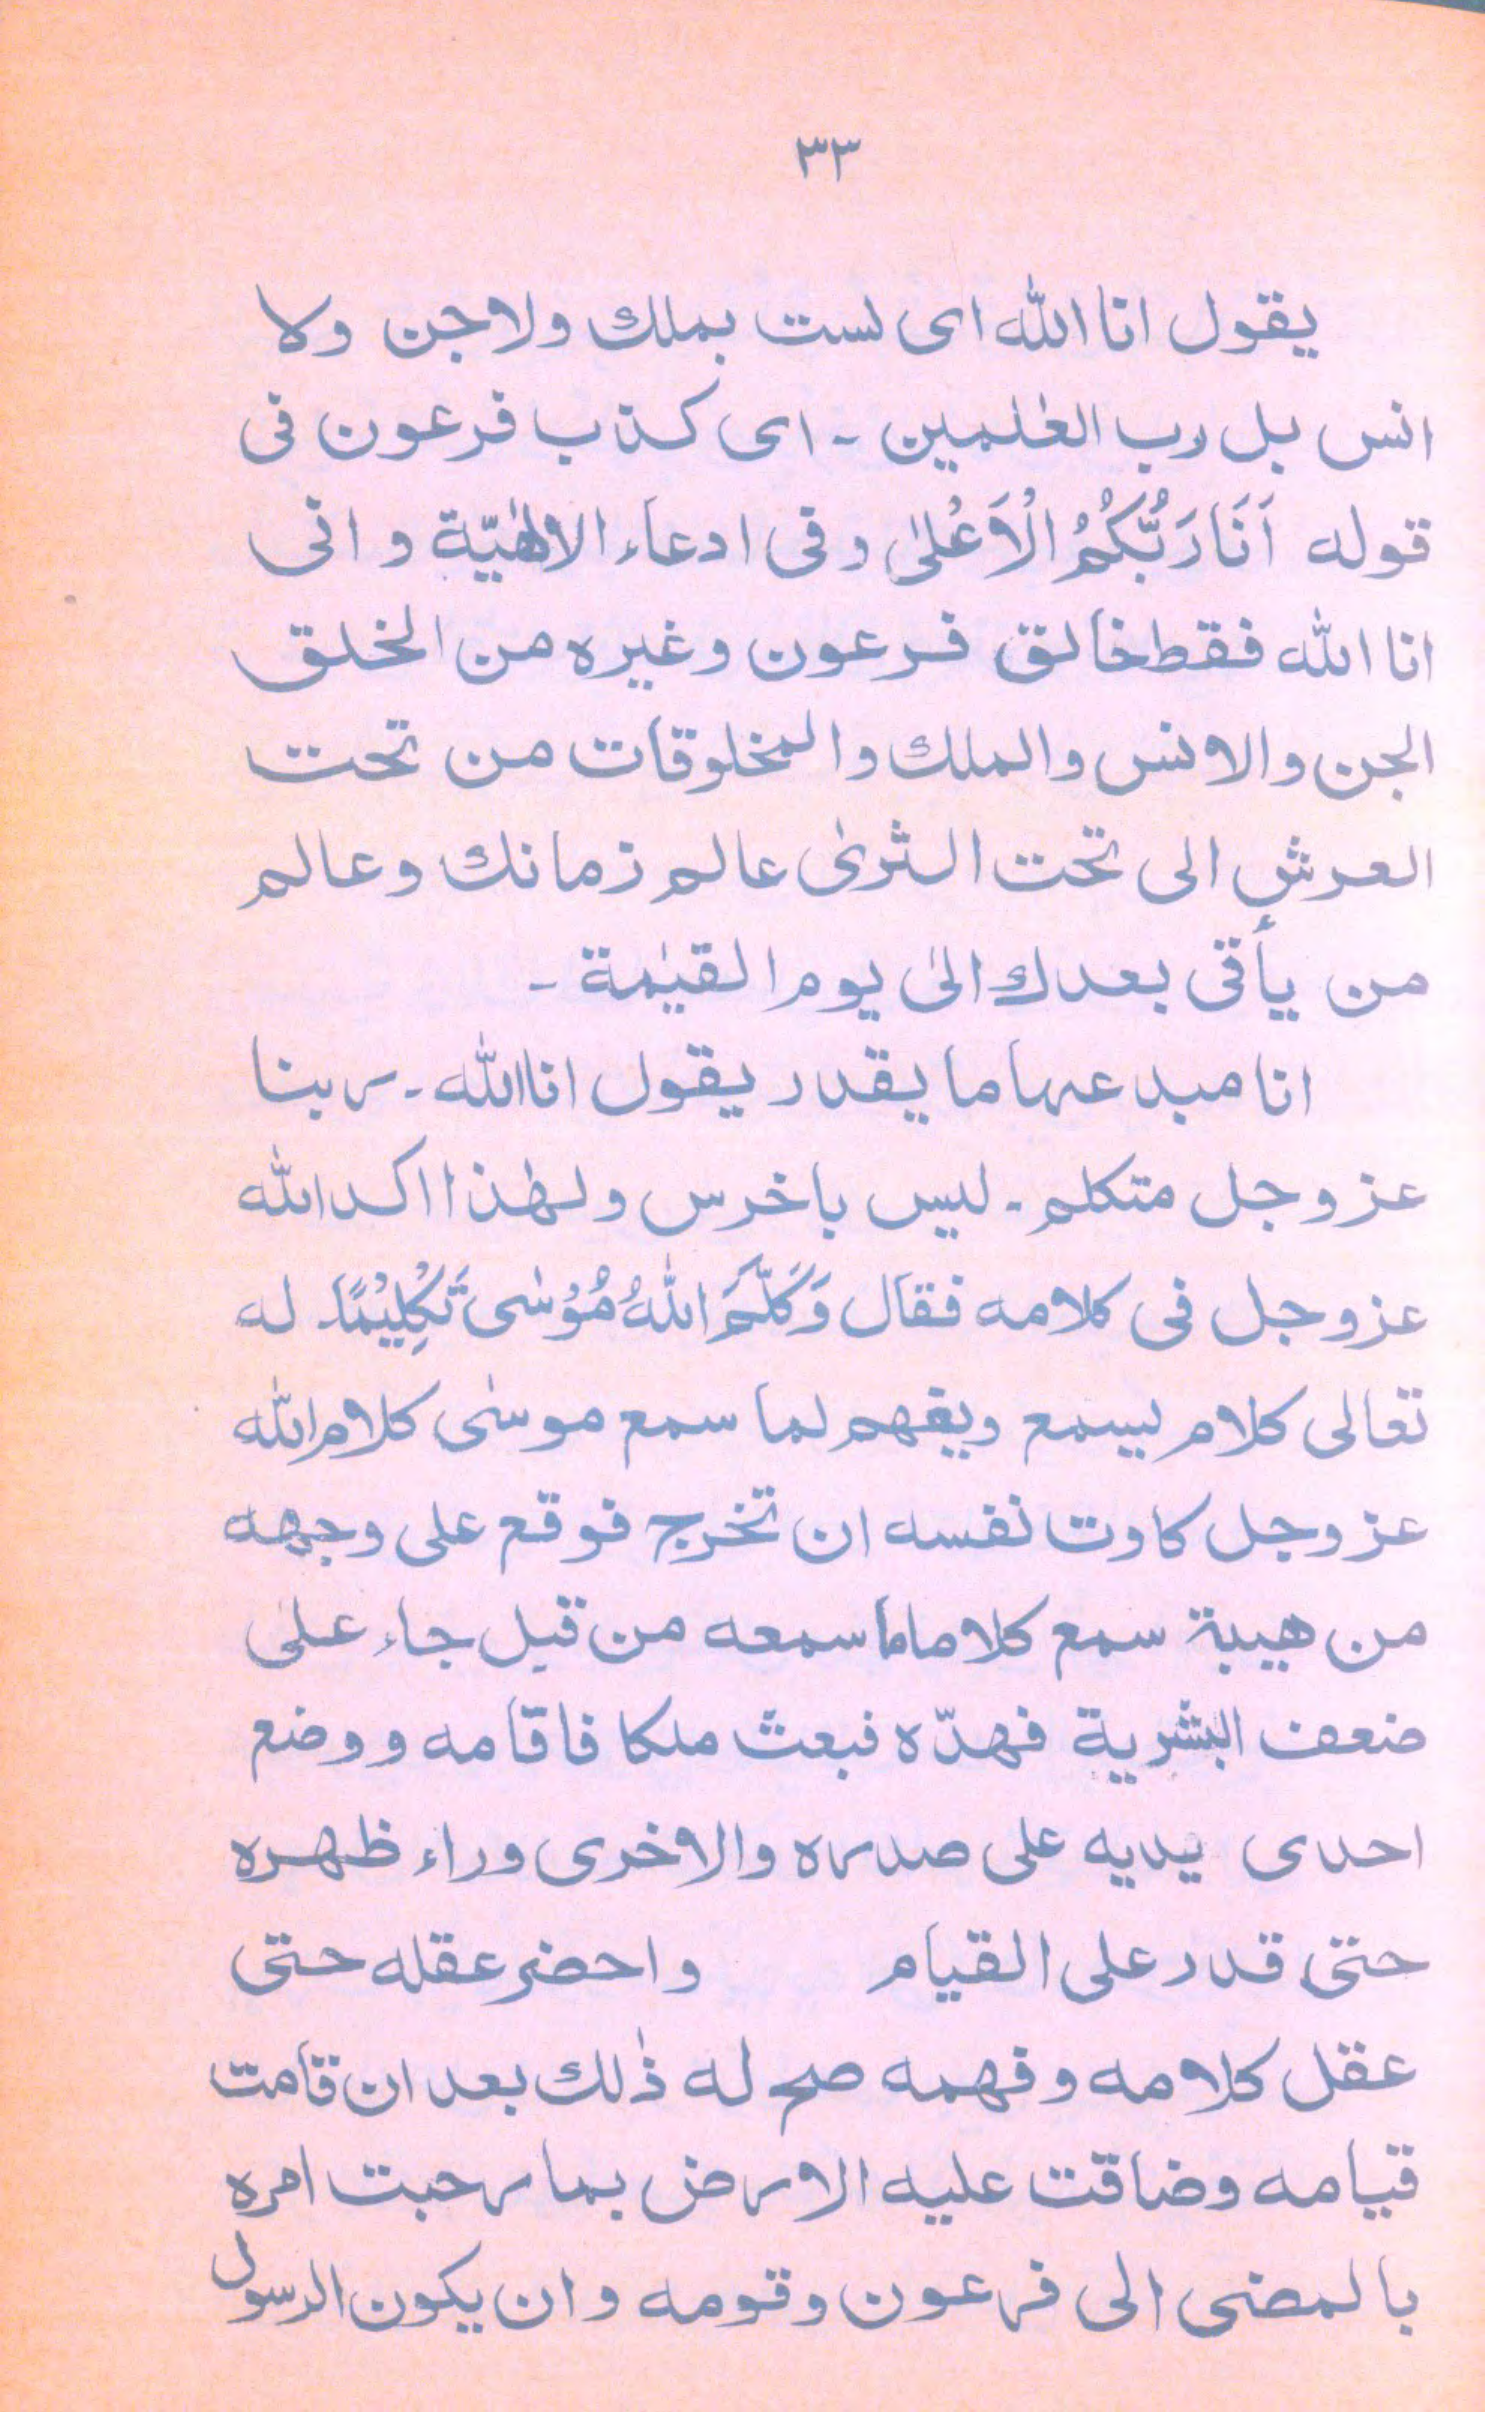 ٣٣
يقول انا الله اى لست بملك ولا جن ولا
انس بل رب العٰلمين ـ اى كذب فرعون فى
قوله اَنَا رَبُّكُمُ الْاَعْلىٰ وفى ادعاء الالٰهيّة و انى
انا الله فقط خالق فرعون وغيره من الخلق
الجن والانس والملك والمخلوقات من تحت
العرش الى تحت الثرىٰ عالم زمانك وعالم
من يأتى بعدك الىٰ يوم القيٰمة ـ
انا مبدعها ما يقدر يقول انا الله ـ ربنا
عز وجل متكلم ـ ليس باخرس ولهٰذا اكد الله
عز وجل فى كلامه فقال وَكَلَّمَ اللهُ مُوْسٰى تَكْلِيْمًا ـ له
تعالى كلام يسمع ويفهم لما سمع موسٰى كلام الله
عز وجل كاوت نفسه ان تخرج فوقع على وجهه
من هيبة سمع كلاما ما سمعه من قبل جاء على
ضعف البشرية فهدّه فبعث ملكا فاقامه ووضع
احدى يديه على صدره والاخرى وراء ظهره
حتى قدر على القيام واحضر عقله حتى
عقل كلامه وفهمه صح له ذٰلك بعد ان قامت
قيامه وضاقت عليه الارض بما رحبت امره
بالمضى الى فرعون وقومه وان يكون الرسول